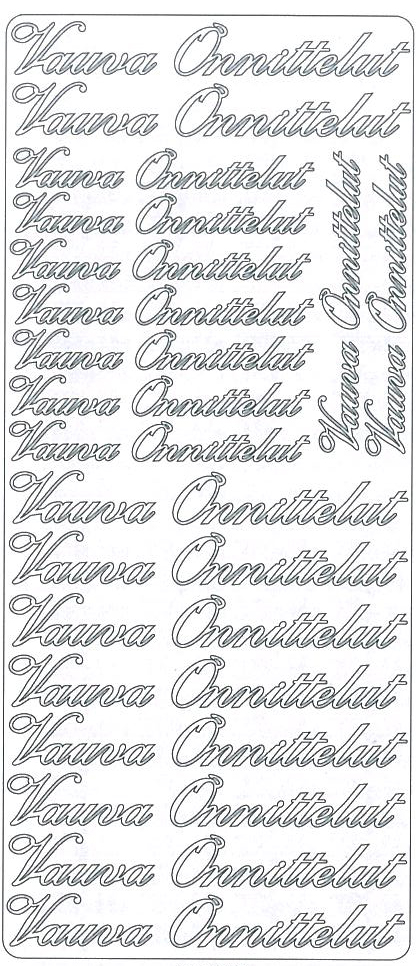 Vauva Onnittelut
Vauva Onnittelut
Vauva Onnittelut
Vauva Onnittelut
Vauva Onnittelut
Vauva Onnittelut
Vauva Onnittelut
Vauva Onnittelut
Vauva Onnittelut
Vauva Onnittelut
Vauva Onnittelut
Vauva Onnittelut
Vauva Onnittelut
Vauva Onnittelut
Vauva Onnittelut
Vauva Onnittelut
Vauva Onnittelut
Vauva Onnittelut
Vauva Onnittelut